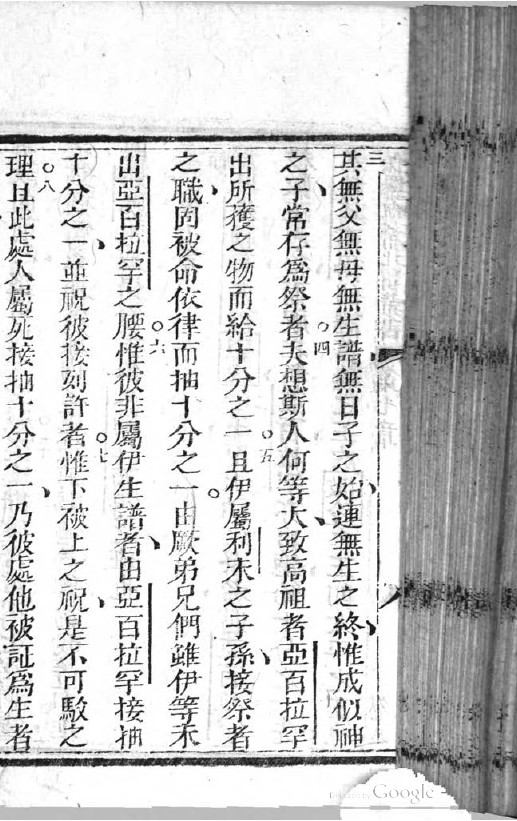 三 其無父無母無生譜無日子之始、連無生之終、惟成似神
之子、常存爲祭者 四 夫想斯人何等大、致高祖者亞百拉罕
出所獲之物而給十分之一 五 且伊屬利未之子孫、接祭者
之職、固被命依律而抽十分之一。由厥弟兄們雖伊等未
出亞百拉罕之腰 六 惟彼非屬伊生譜者、由亞百拉罕接抽
十分之一、並祝彼接列許者 七 惟下被上之祝、是不可駁之
理 八 且此處人屬死接抽十分之一、乃彼處他被証爲生者
Google